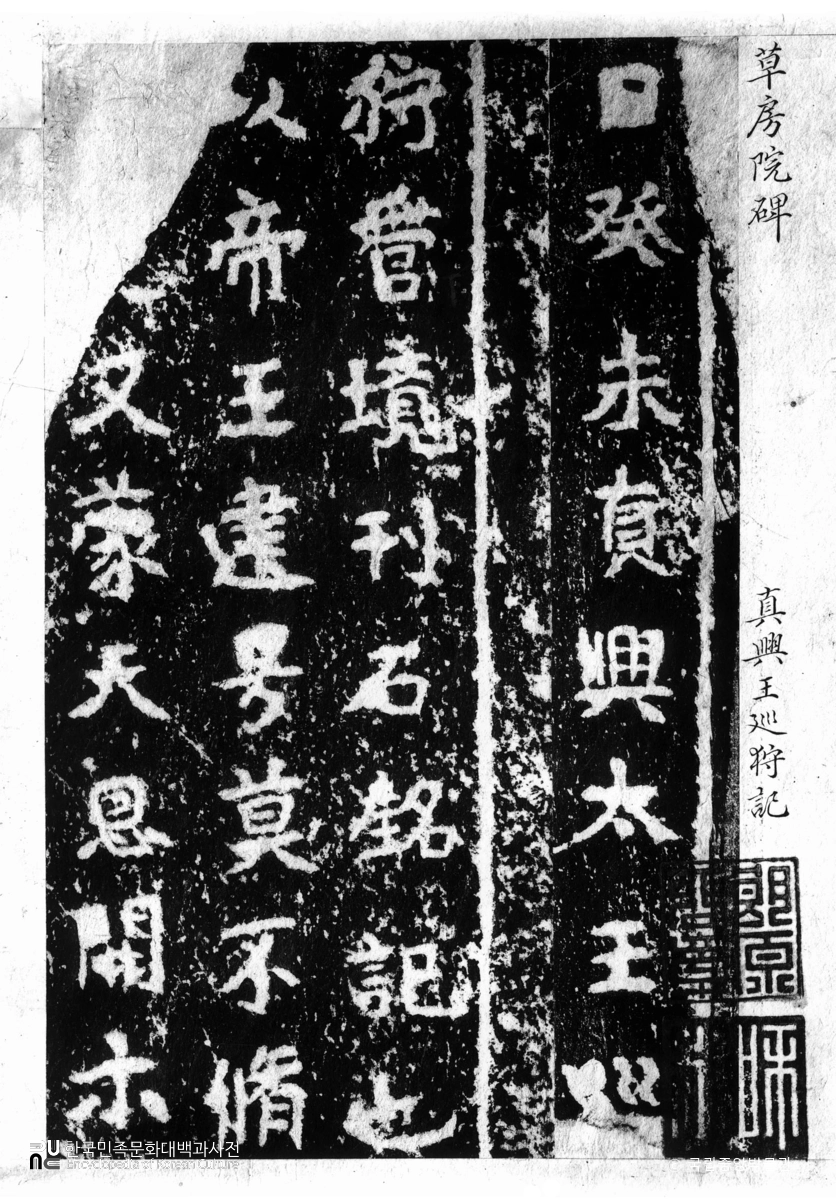 草房院碑 真興王巡狩記
日癸未真興太王巡
狩管境刊石銘記也
帝王建号莫不脩
又蒙天恩開示
한국민족문화대백과사전
Encyclopedia of Korean Culture